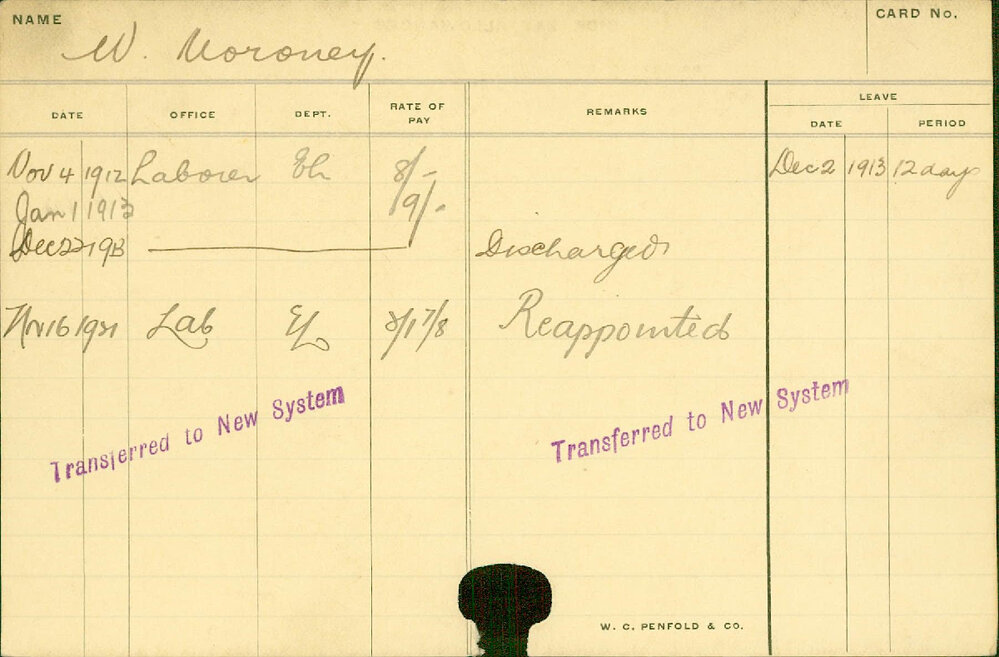 NAME
W. Moroney.
CARD No.
DATE OFFICE DEPT. RATE OF PAY REMARKS LEAVE
DATE PERIOD
Nov 4 1912 Laborer 8/- Dec 2 1913 12 days
Jan 1 1913 9/-
Dec 22 1913 Discharged
Nov 16 1921 Lab EL Reappointed
Transferred to New System
Transferred to New System
W. C. PENFOLD & CO.